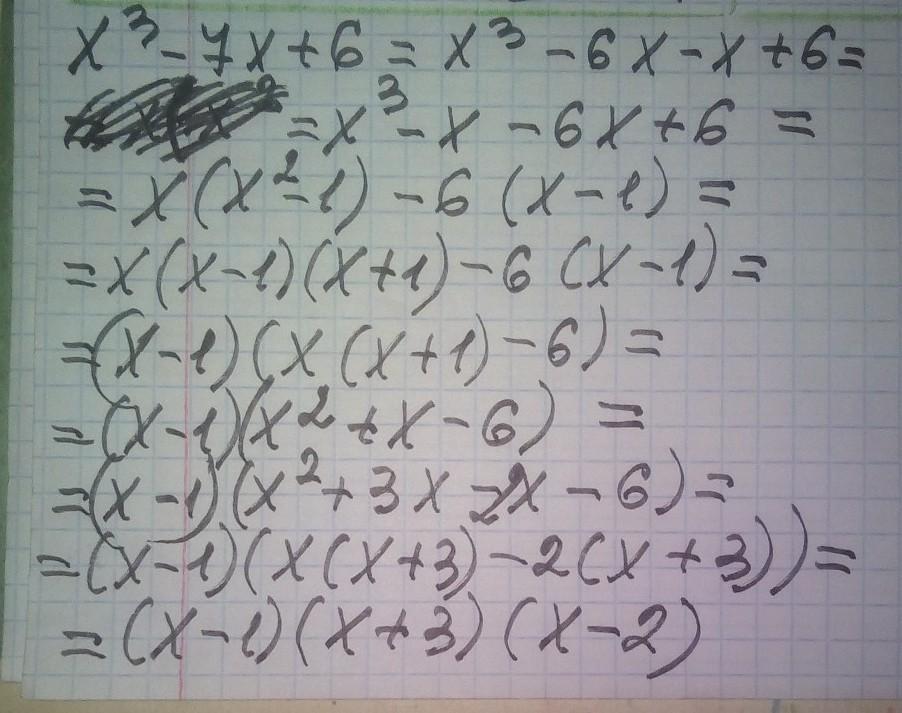 x³ - 7x + 6 = x³ - 6x - x + 6 =
= x³ - x - 6x + 6 =
= x(x² - 1) - 6(x - 1) =
= x(x - 1)(x + 1) - 6(x - 1) =
= (x - 1)(x(x + 1) - 6) =
= (x - 1)(x² + x - 6) =
= (x - 1)(x² + 3x - 2x - 6) =
= (x - 1)(x(x + 3) - 2(x + 3)) =
= (x - 1)(x + 3)(x - 2)